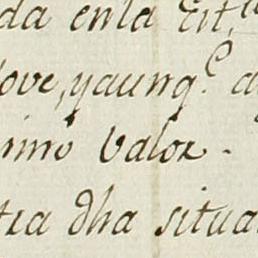 da enla cit.ª
ove, yaunq.ᵉ
imo valor.
tra dha situa